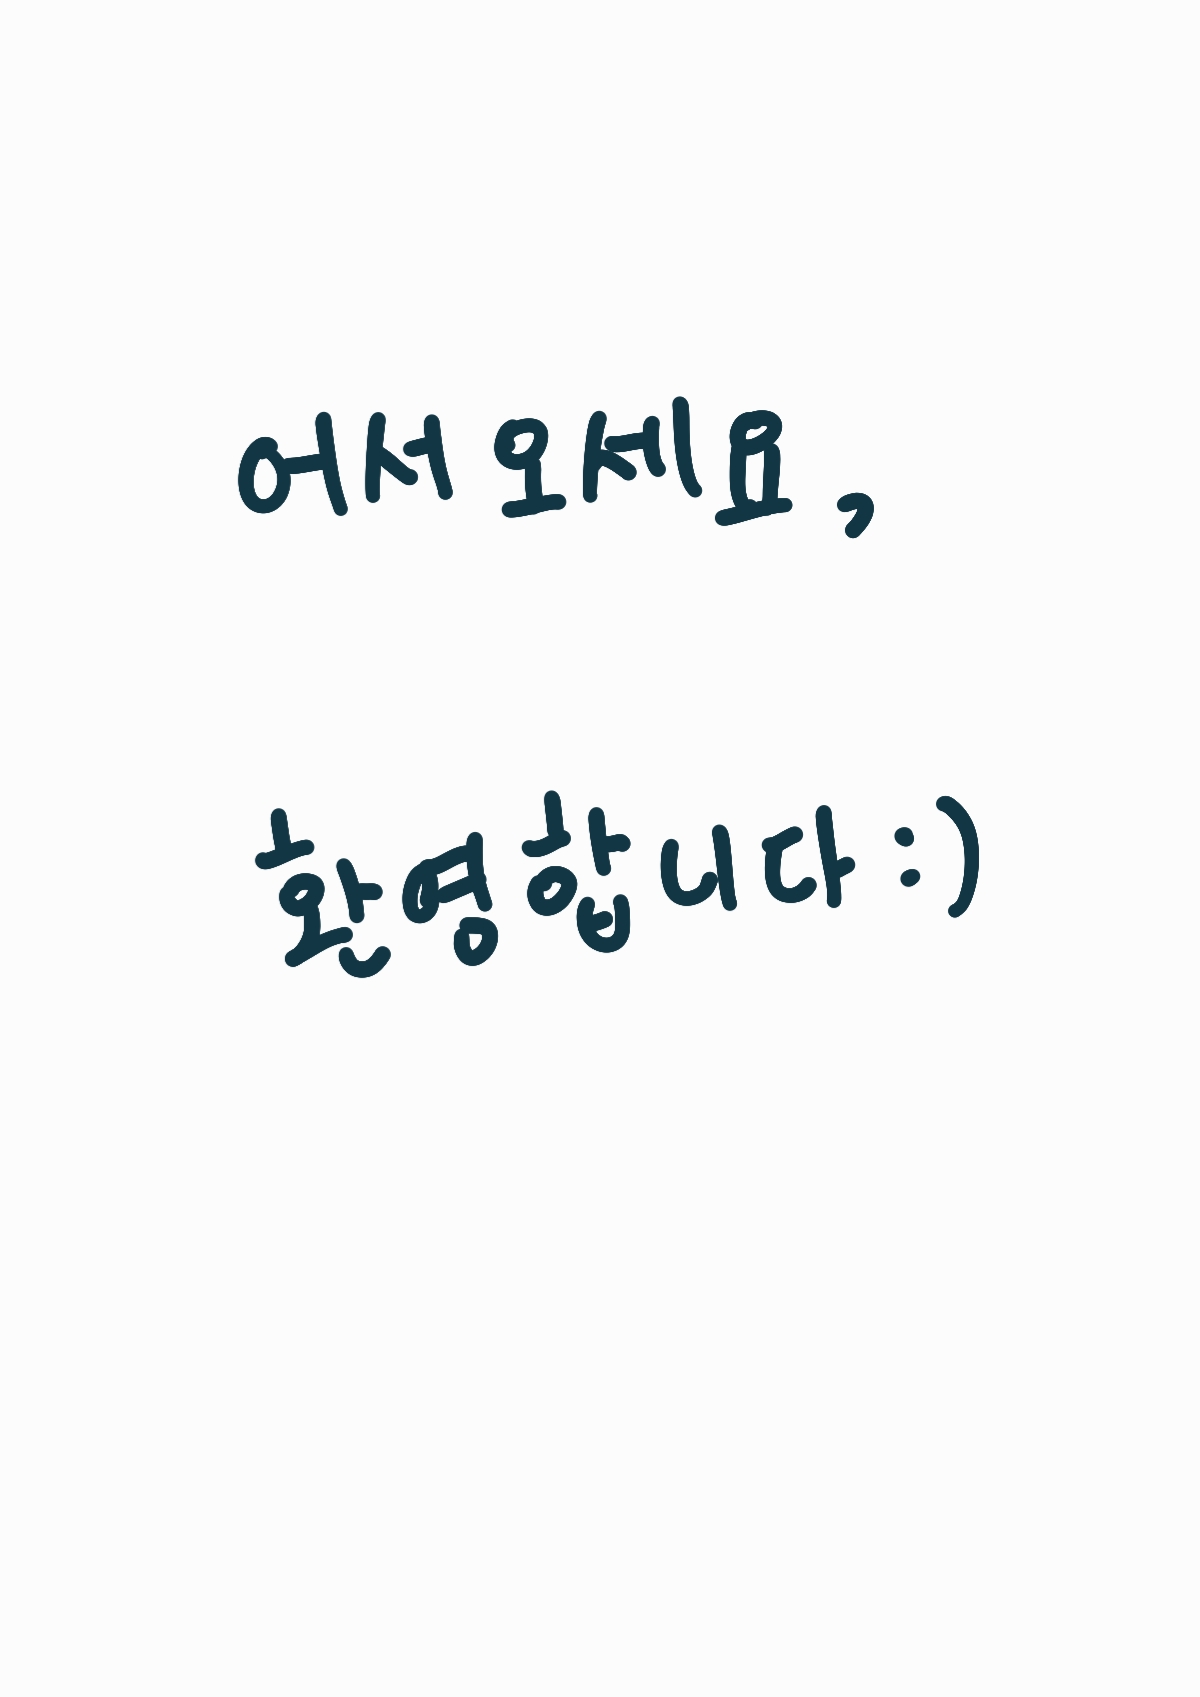 어서 오세요,
환영합니다 :)